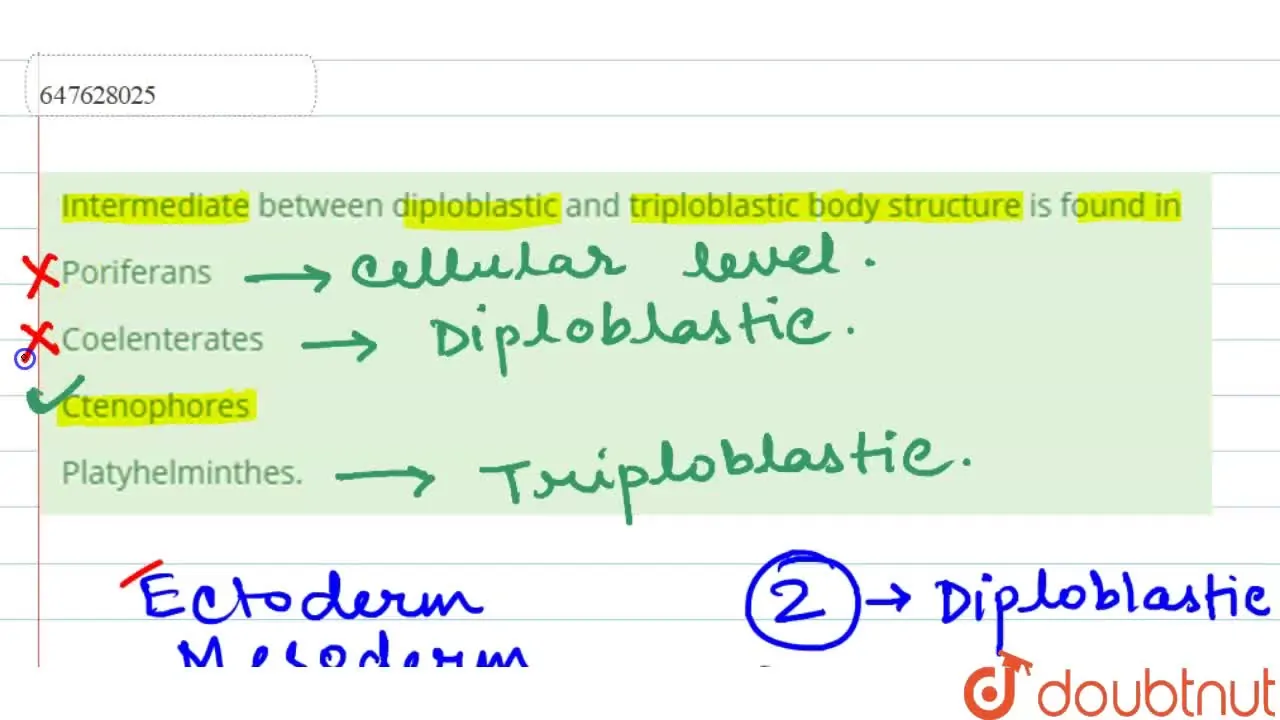 647628025
Intermediate between diploblastic and triploblastic body structure is found in
Poriferans → Cellular level.
Coelenterates → Diploblastic.
Ctenophores
Platyhelminthes. → Triploblastic.
Ectoderm 2 → Diploblastic
Mesoderm
doubtnut